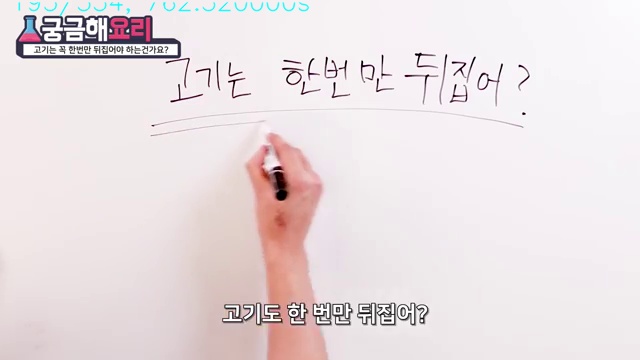 195/334, 762.520000s
궁금해요리
고기는 꼭 한번만 뒤집어야 하는건가요?
고기는 한번만 뒤집어?
고기도 한 번만 뒤집어?